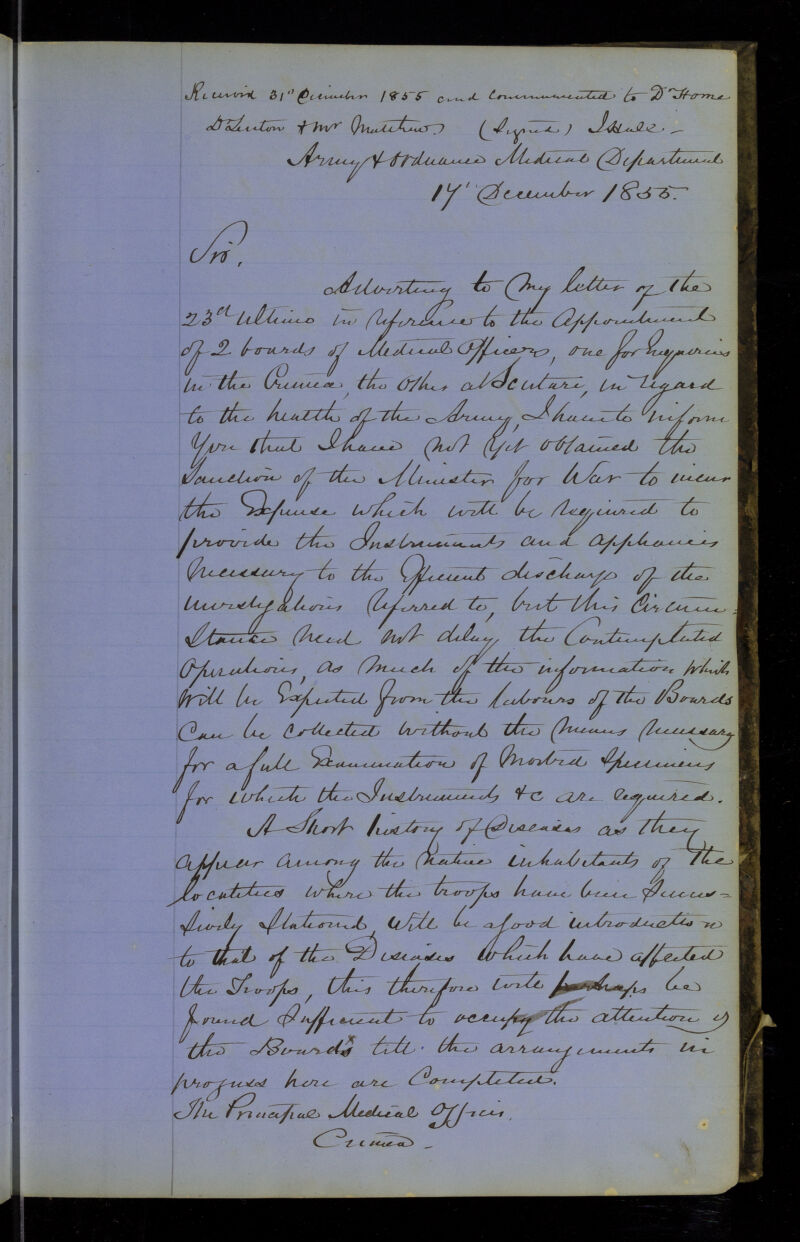 Received 31st December 1855 and communicated to Dr Home
Dr Linton & Mr Matthew (Signed) J Hall –
Army & Ordnance Medical Department
17th December 1855.
Sir,
Adverting to my letter of the
23rd Ultimo in reference to the appointment
of 2 boards of Medical Officers, one for Inquiries
in the Crimea, the other at Scutari, in regard
to the health of the Army, I have to inform
you that I have not yet obtained the
Sanction of the Minister for War to incur
the Expense which will be required to
provide the Instruments and appliances
necessary to the Efficient discharge of the
investigations referred to, but this Circum=
stance need not delay the Contemplated
operations, as much of the information which
will be Expected from the labours of the Boards
Can be collected without the means necessary
for a full Examination of Morbid Specimens
for which the Instruments &c are required.
A Short history of Diseases as they
appear among the native inhabitants of the
localities where the troops have been Succes=
sively Stationed, will be a good introduction
to that of the Diseases which have affected
the Troops, this therefore will perhaps be
found Sufficient to occupy the attention of
the Boards till the arrangements in
progress here are Completed.
The Principal Medical Officer.
Crimea –